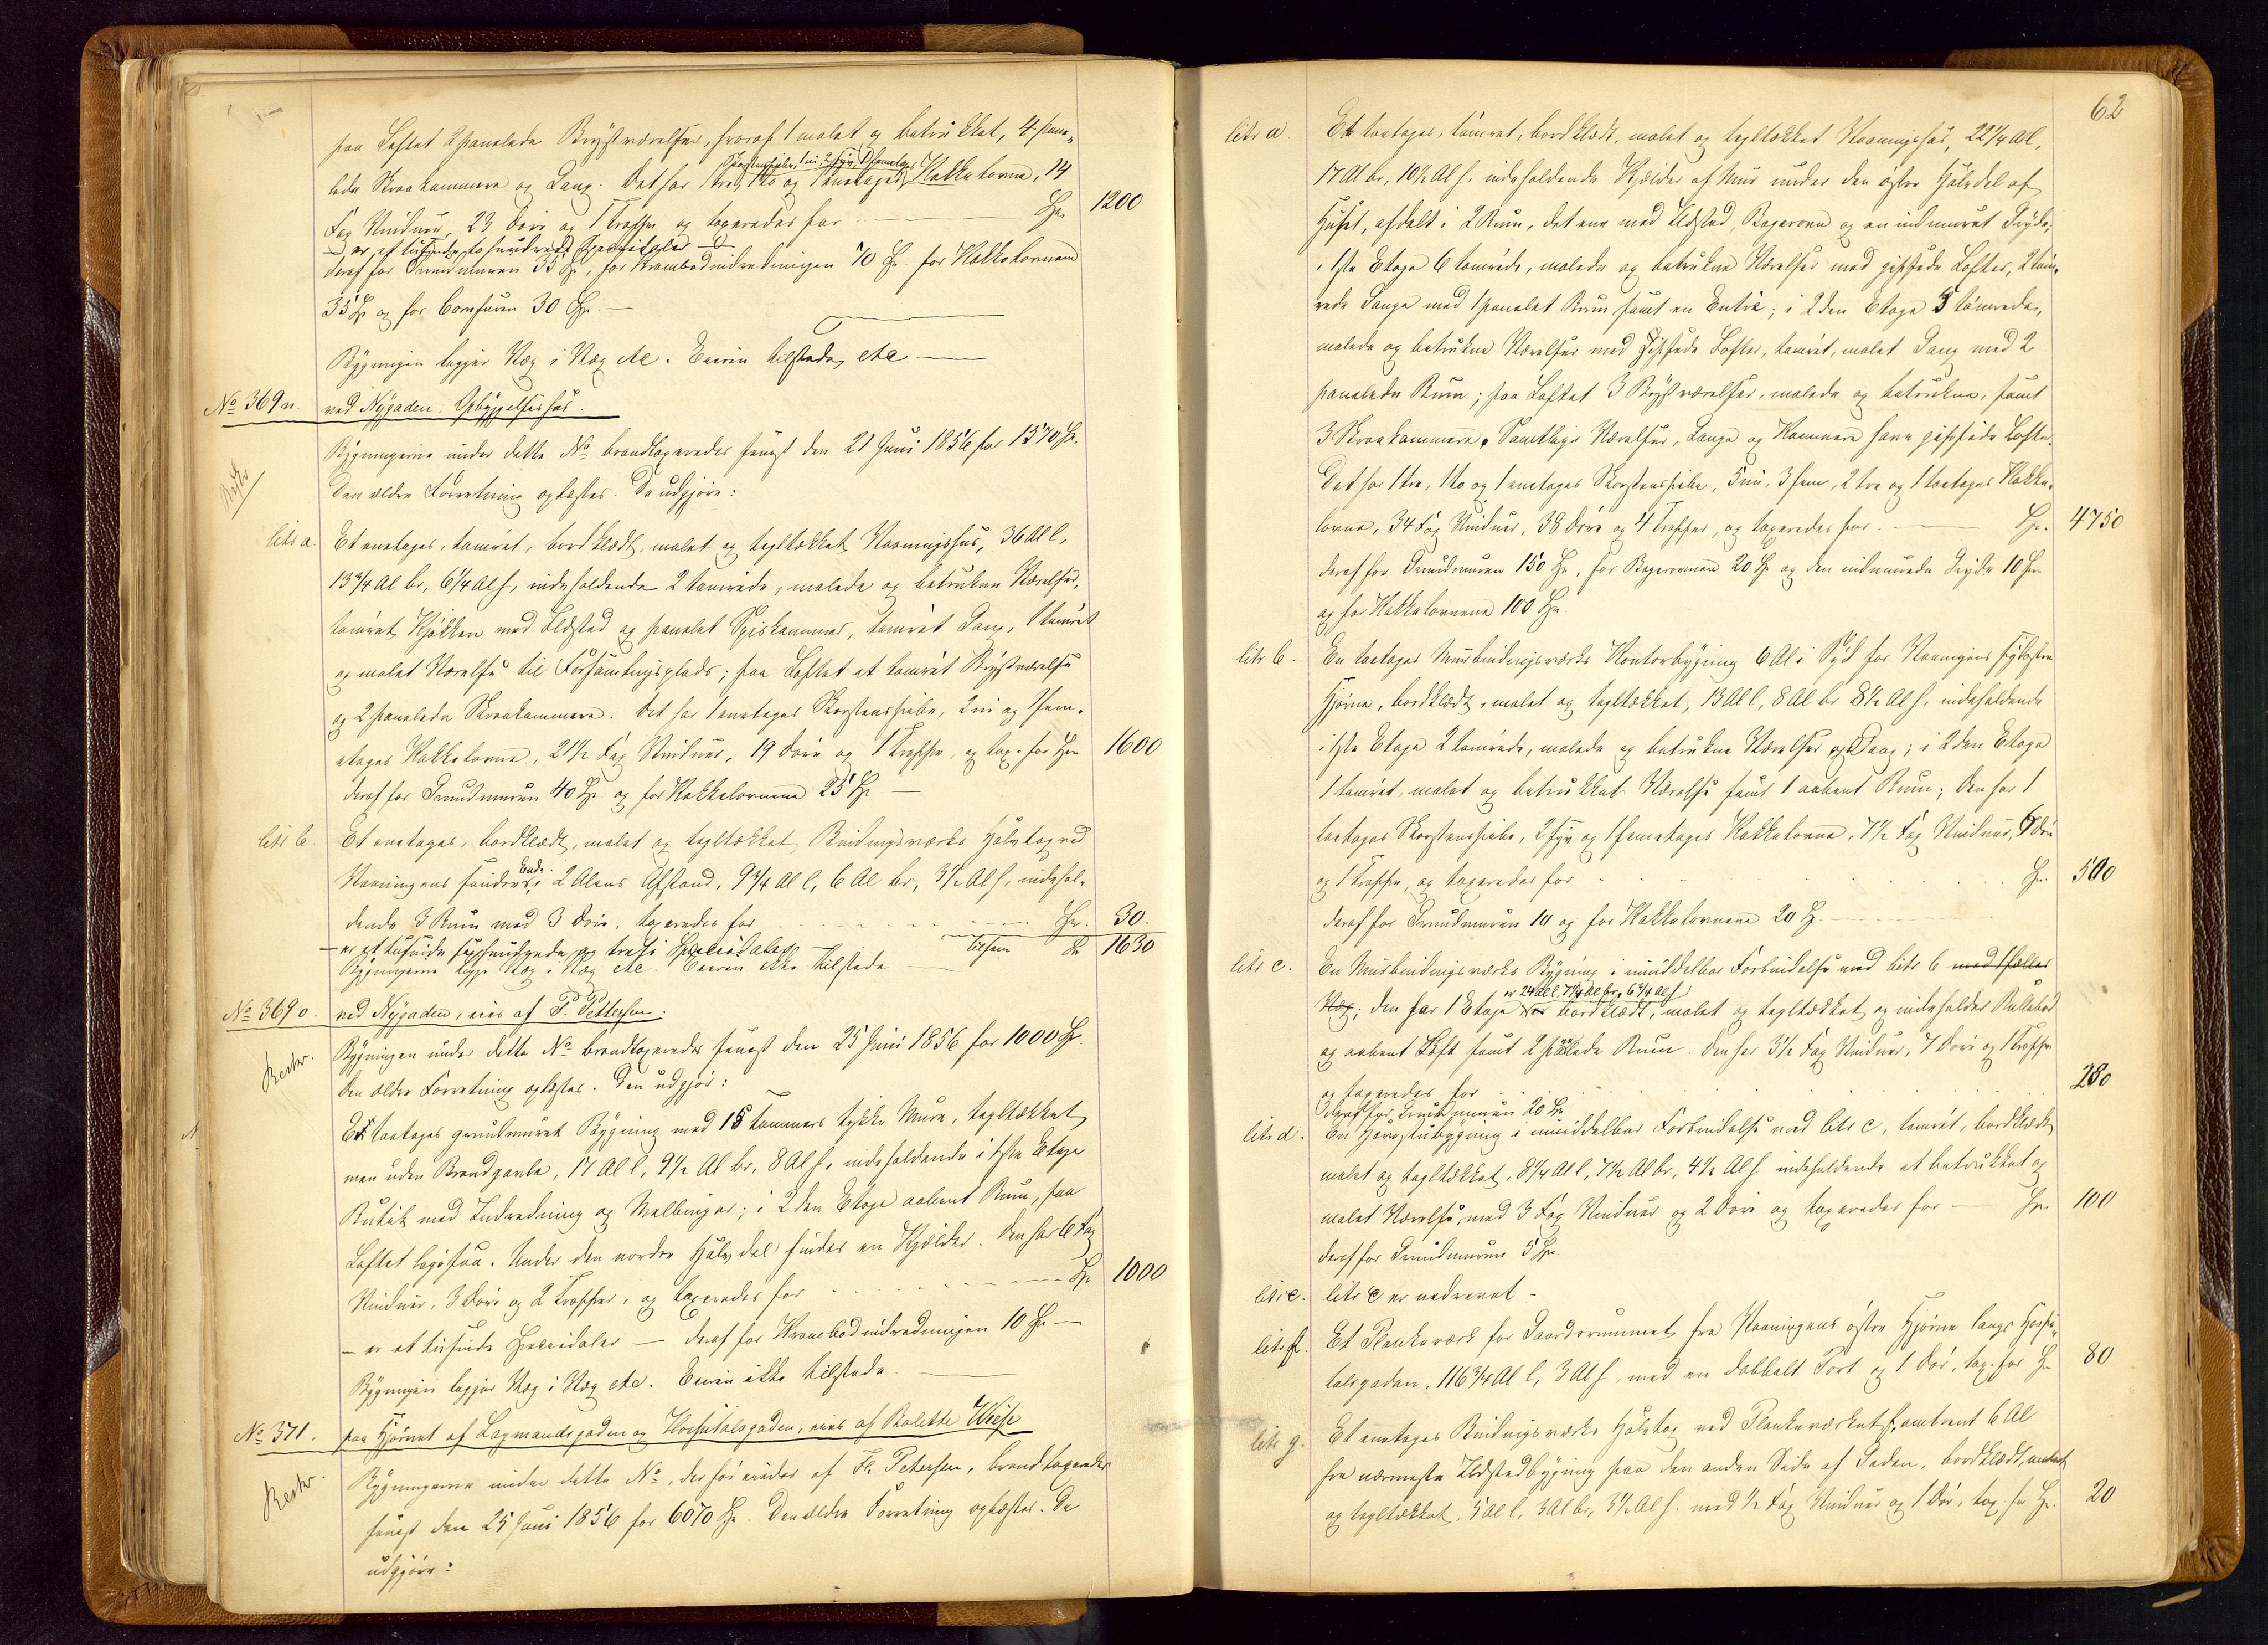 paa Loftet 2 panelede Brystværelser, hvoraf 1 malet og betrukket, 4 pane-
lede Skraakammere og Gang. Det har 1 tre, 1 to og 1 enetages Skorstenspiber, 1 ni, 2 syv, 1 femetages Kakkelovne, 14
Fag Vinduer, 23 Døre og 1 Trappe og taxeredes for Spd. 1200
– er et tusinde tohundrede Speciedaler –
deraf for Grundmuren 35 Spd, for Krambodindredningen 70 Spd. for Kakkelovnene
35 Spd og for Comfuren 30 Spd. –
Bygningen ligger Væg i Væg etc. Eieren tilstede, etc
No 369 n. ved Nygaden. Opbyggelseshus.
Bygningerne under dette No brandtaxeredes senest den 21 Juni 1856 for 1570 Spd.
Beskr
Den ældre Forretning oplæstes. De udgjøre:
litr a. Et enetages, tømret, bordklædt, malet og tegltækket Vaaningshus, 36 Al l,
13 3/4 Al br, 6 1/4 Al h, indeholdende 2 tømrede, malede og betrukne Værelser,
tømret Kjøkken med Ildsted og panelet Spiskammer, tømret Gang, 1 tømret
og malet Værelse til Forsamlingsplads; paa Loftet et tømret Brystværelse
og 2 panelede Skraakammere. Det har 1 enetages Skorstenspibe, 2 ni og 1 fem-
etages Kakkelovne, 21 1/2 Fag Vinduer, 19 Døre og 1 Trappe, og tax. for Spd 1600
deraf for Grundmuren 40 Spd og for Kakkelovnene 25 Spd. –
litr b. Et enetages, bordklædt, malet og tegltækket Bindingsværks Halvtag ved
Vaaningens søndre Ende i 2 Alens Afstand, 9 3/4 Al l, 6 Al br, 3 1/2 Al h, indehol-
dende 3 Rum med 3 Døre, taxeredes for Spd. 30.
– er et tusinde sexhundrede og treti Speciedaler – tilsam Spd 1630
Bygningerne ligge Væg i Væg etc. Eieren ikke tilstede
No 369 o. ved Nygaden, eies af P. Pettersen.
Beskr.
Bygningen under dette No brandtaxeredes senest den 25 Juni 1856 for 1000 Spd.
Den ældre Forretning oplæstes. Den udgjør:
En toetages grundmuret Bygning med 15 Tommers tykke Mure, tegltækket
men uden Brandgavle, 17 Al l, 9 1/2 Al br, 8 Al h, indeholdende i 1ste Etage
Butik med Indredning og Mellingar; i 2den Etage aabent Rum, paa
Loftet ligesaa. Under den nordre Halvdel findes en Kjælder. Den har 6 Fag
Vinduer, 3 Døre og 2 Trapper, og taxeredes for Spd 1000
– er et tusinde Speciedaler – deraf for Krambodindredningen 10 Spd –
Bygningen ligger Væg i Væg etc. Eieren ikke tilstede.
No 371. paa Hjørnet af Lagmandsgaden og Hospitalsgaden, eies af Bolette Wiese
Beskr.
Bygningerne under dette No, der før eiedes af Fr. Petersen, brandtaxeredes
senest den 25 Juni 1856 for 6070 Spd. Den ældre Forretning oplæstes. De
udgjøre:
62
litr a. Et toetages, tømret, bordklædt, malet og tegltækket Vaaningshus, 22 1/4 Al l,
17 Al br, 10 1/2 Al h. indeholdende Kjælder af Mur under den østre Halvdel af
Huset, afdelt i 2 Rum, det ene med Ildsted, Bagerovn og en indmuret Gryde;
i 1ste Etage 6 tømrede, malede og betrukne Værelser med gipsede Lofter, 2 tøm-
rede Gange med 1 panelet Rum samt en Entre; i 2den Etage 5 tømrede,
malede og betrukne Værelser med gipsede Lofter, tømret, malet Gang med 2
panelede Rum; paa Loftet 3 Brystværelser, malede og betrukne, samt
3 Skraakammere. Samtlige Værelser, Gange og Kammere have gipsede Lofter.
Det har 1 tre, 1 to og 1 enetages Skorstenspibe, 5 ni, 3 fem, 2 tre og 1 toetages Kakke-
lovne, 34 Fag Vinduer, 38 Døre og 4 Trapper, og taxeredes for Spd. 4750
deraf for Grundmuren 150 Spd, for Bagerovnen 20 Spd og den indmurede Gryde 10 Spd
og for Kakkelovnene 100 Spd.
litr b – En toetages Murbindingsværks Kontorbygning 6 Al i Syd for Vaaningens sydøstre
Hjørne, bordklædt, malet og tegltækket, 13 Al l, 8 Al br 8 1/2 Al h, indeholdende
i 1ste Etage 2 tømrede, malede og betrukne Værelser og Gang; i 2den Etage
1 tømret, malet og betrukket Værelse samt 1 aabent Rum; den har 1
toetages Skorstenspibe, 2 syv og 1 femetages Kakkelovne, 7 1/2 Fag Vinduer, 6 Døre
og 1 Trappe, og taxeredes for Spd. 500
deraf for Grundmuren 10 og for Kakkelovnene 20 Spd.
litr c. En Murbindingsværks Bygning i umiddelbar Forbindelse med litr b med fælles
Væg; den har 1 Etage er 24 Al l, 7 1/4 Al br, 6 3/4 Al h, bordklædt, malet og tegltækket og indeholder Rullebod
og aabent Loft samt 2 panelede Rum. Den har 3 1/2 Fag Vinduer, 7 Døre og 1 Trappe
og taxeredes for 280
deraf for Grundmuren 20 Spd
litr d. En Havestubygning i umiddelbar Forbindelse med litr c, tømret, bordklædt,
malet og tegltækket, 8 1/4 Al l, 7 1/2 Al br, 4 1/2 Al h indeholdende et betrukket og
malet Værelse, med 3 Fag Vinduer og 2 Døre og taxeredes for – Spd 100
deraf for Grundmuren 5 Spd.
litr e. litr e er nedrevet –
litr f. Et Plankeværk for Gaardsrummet fra Vaaningens østre Hjørne langs Hospi-
talsgaden, 116 3/4 Al l, 3 Al h, med en dobbelt Port og 1 Dør, tax. for Spd 80
litr g. Et enetages Bindingsværks Halvtag ved Plankeværket, omtrent 6 Al
fra nærmeste Ildstedbygning paa den anden Side af Gaden, bordklædt, malet
og tegltækket, 5 Al l, 3 Al br, 3 1/2 Al h. med 1/2 Fag Vinduer og 1 Dør, tax. for Spd. 20